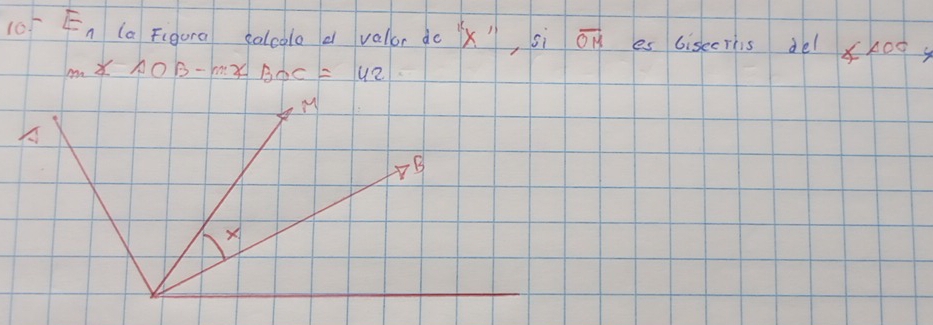 10- En la Figura calcula el valor de "x", si OM es bisectris del ∡ AOC y
m∡ AOB - m∡ BOC = 42
M
A
B
x